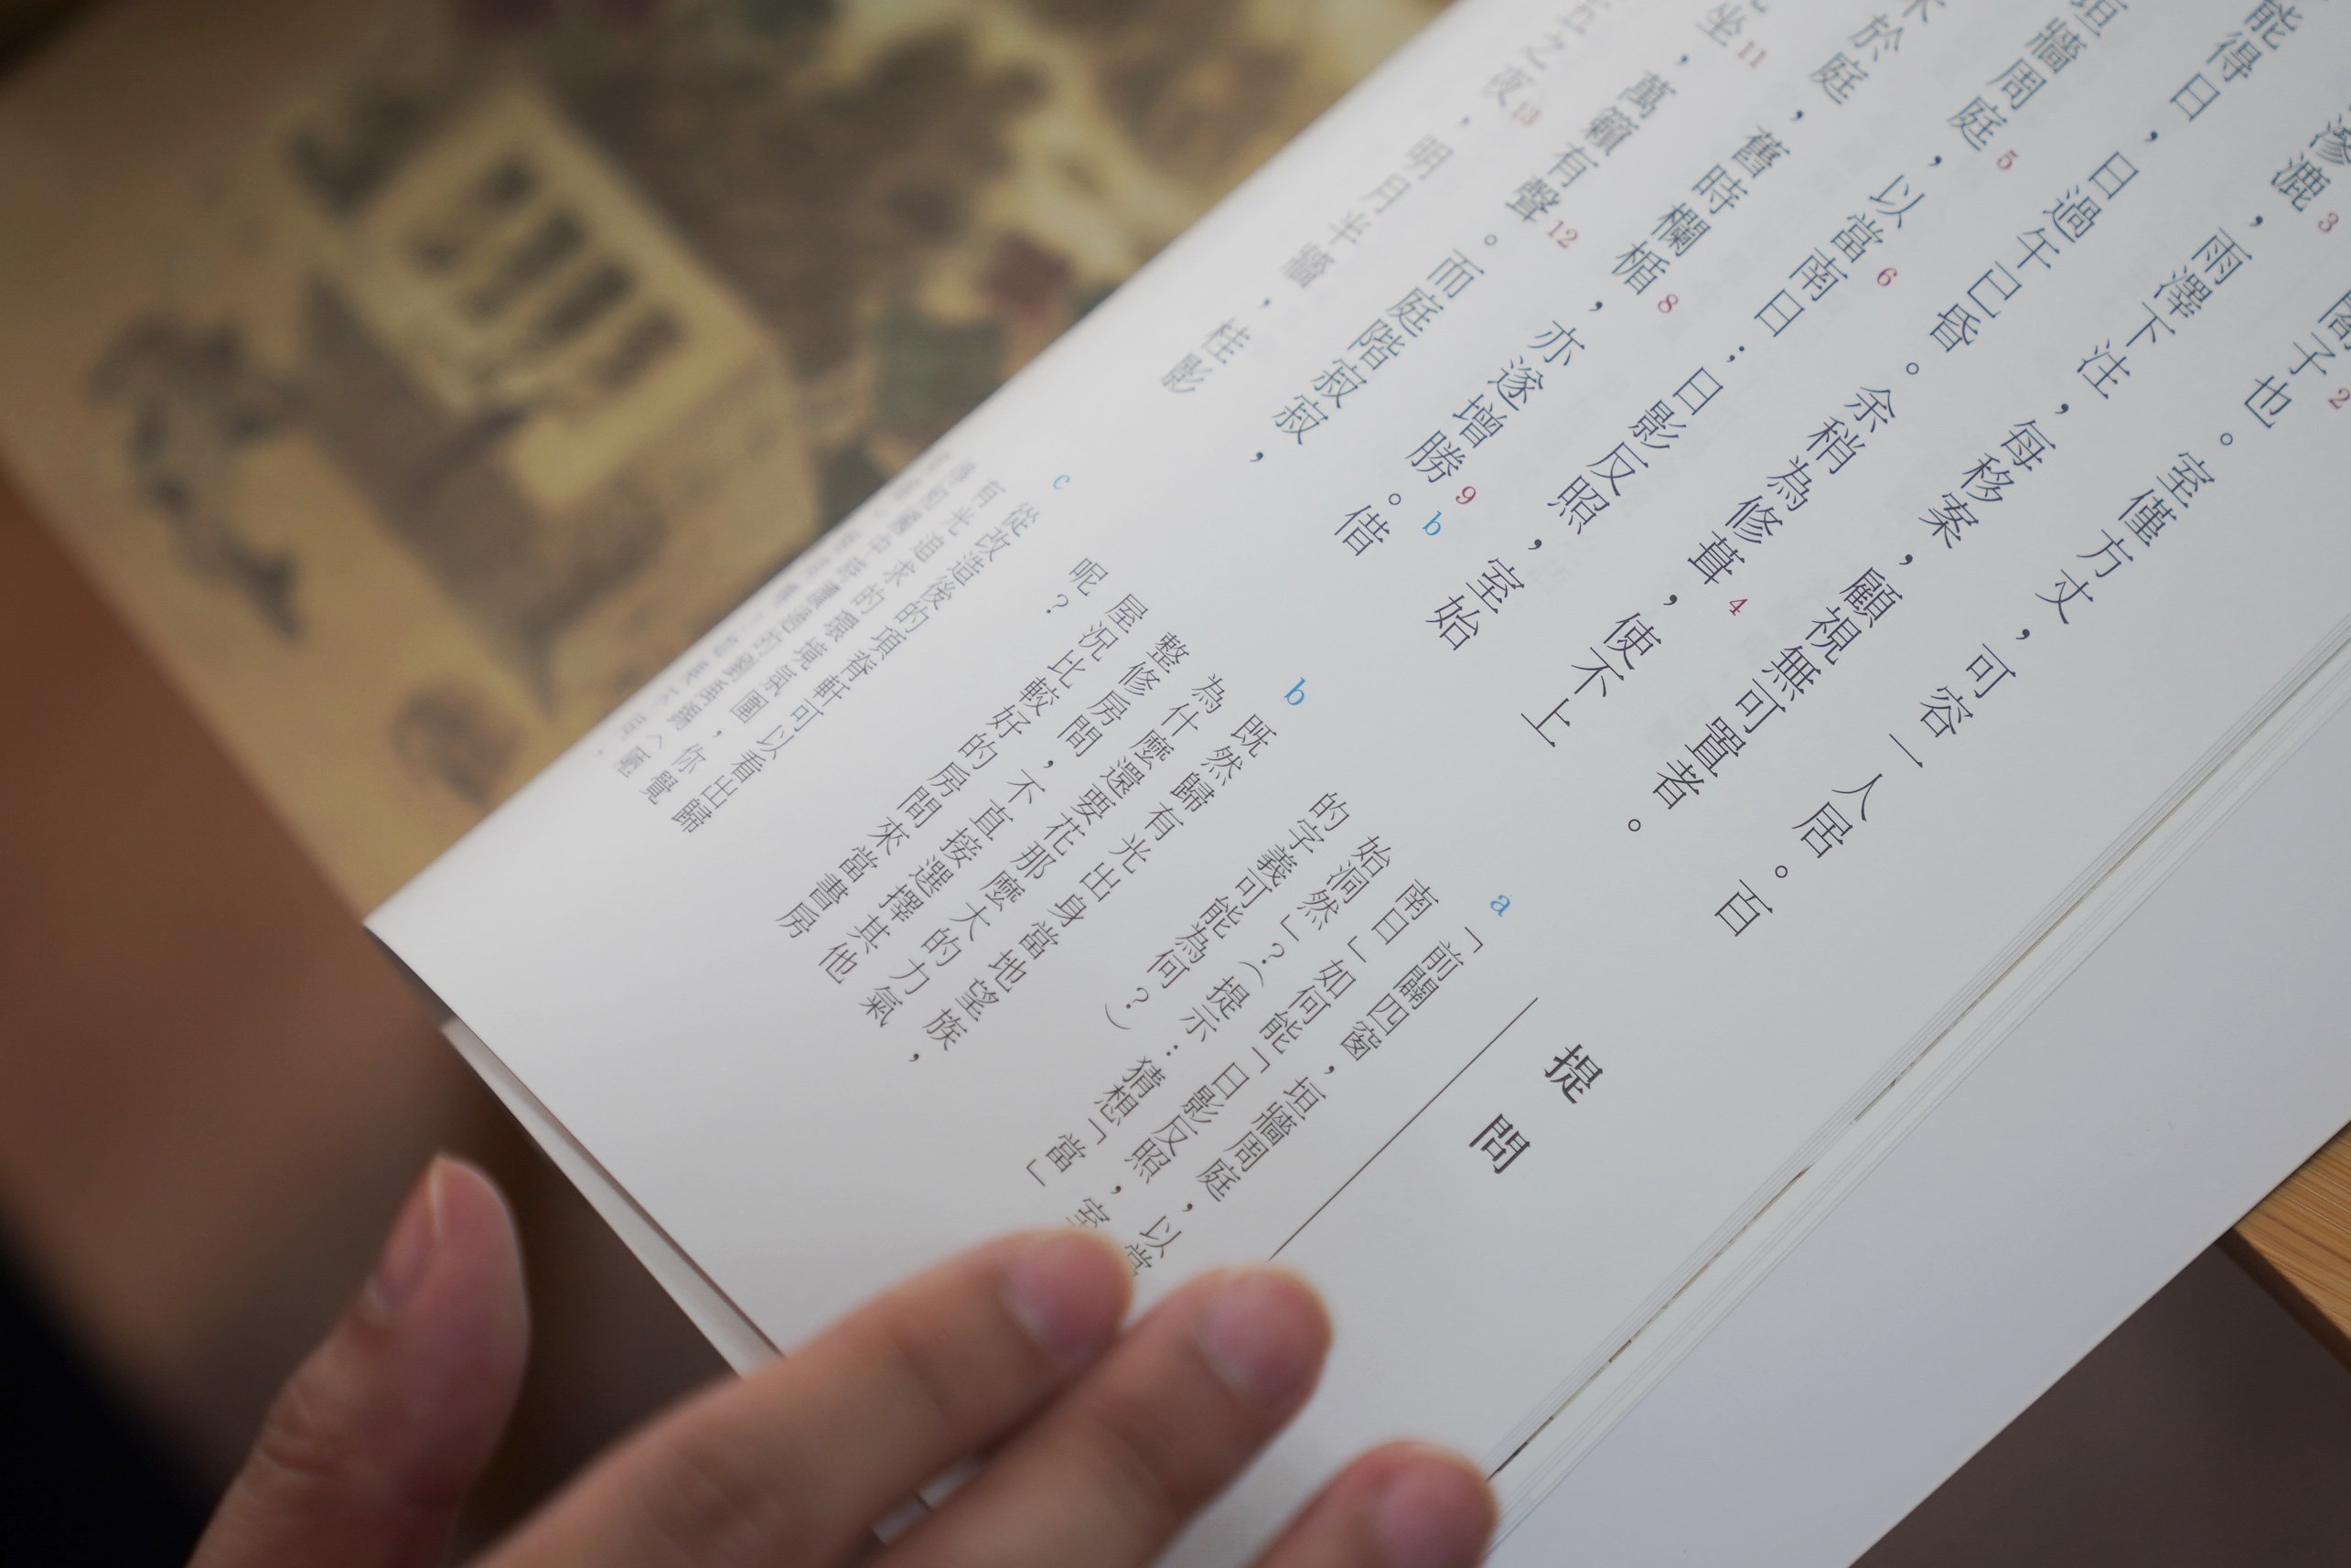 閤子2也。室僅方丈，可容一人居。百
滲漉3，雨澤下注，每移案，顧視無可置者。
能得日，日過午已昏。余稍為修葺4，使不上
垣牆周庭5，以當6南日；日影反照，室始
木於庭，舊時欄楯8，亦遂增勝9b。借
坐11，萬籟有聲12。而庭階寂寂，
之夜13，明月半牆，桂影
提問
a 「前闢四窗，垣牆周庭，以當
南日」如何能「日影反照，室
始洞然」？（提示：猜想「當」
的字義可能為何？）
b 既然歸有光出身當地望族，
為什麼還要花那麼大的力氣
整修房間，不直接選擇其他
屋況比較好的房間來當書房
呢？
c 從改造後的項脊軒可以看出歸
有光追求的環境氛圍，你覺